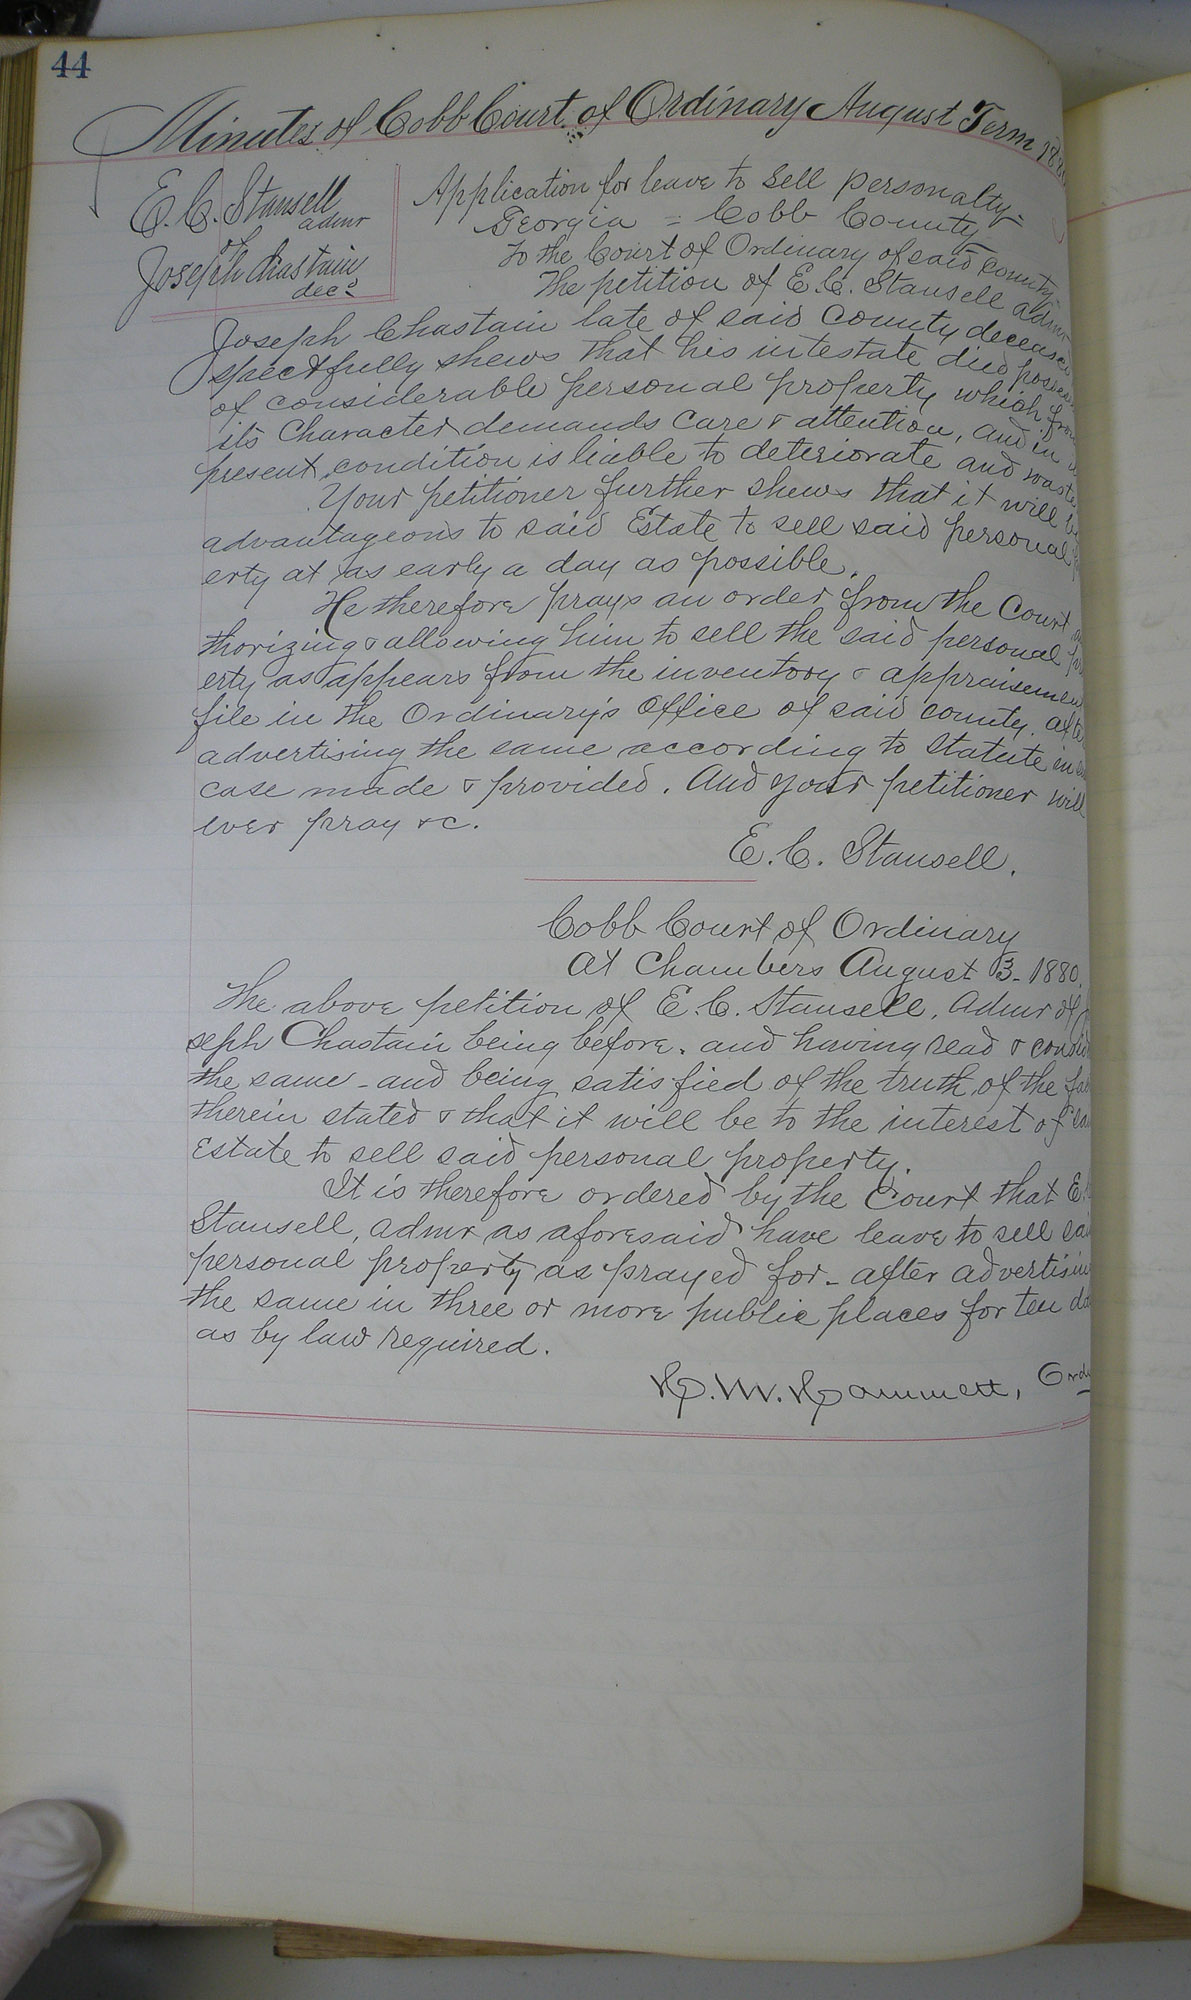 44
Minutes of Cobb Court of Ordinary August Term 1880
E. C. Stansell
admr
of
Joseph Chastain
decd
Application for leave to Sell personalty=
Georgia = Cobb County
To the Court of Ordinary of said County
The petition of E. C. Stansell admr
Joseph Chastain late of said County deceased
spectfully shews that his intestate died posses
of considerable personal property which from
its Character demands Care & attention, and in
present condition is liable to deteriorate and waste
Your petitioner further shews that it will be
advantageous to said Estate to sell said personal
erty at as early a day as possible.
He therefore prays an order from the Court
thorizing & allowing him to sell the said personal
erty as appears from the inventory & appraisement
file in the Ordinary's Office of said county. after
advertising the same according to Statute in
case made & provided. And your petitioner will
ever pray &c.
E. C. Stansell.
Cobb Court of Ordinary
At Chambers August 3 - 1880.
The above petition of E. C. Stansell, Admr of
seph Chastain being before. and having read &
the same - and being satisfied of the truth of the
therein stated & that it will be to the interest of
Estate to sell said personal property.
It is therefore ordered by the Court that E.
Stansell, admr as aforesaid have leave to sell
personal property as prayed for - after advertising
the same in three or more public places for ten
as by law required.
H. M. Hammett, Ord